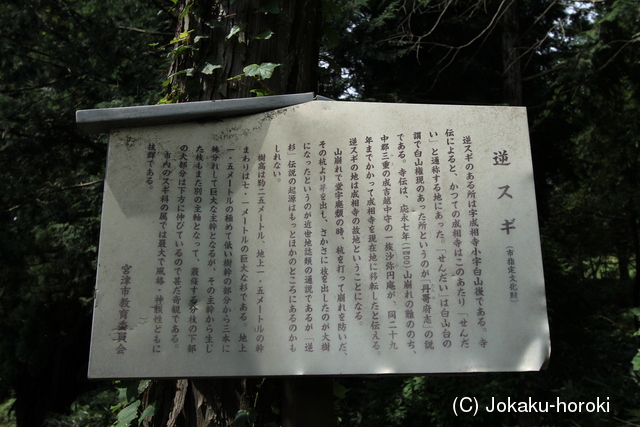 逆スギ（市指定文化財）
逆スギのある所は字成相寺小字白山後である。寺
伝によると、かつての成相寺はこのあたり「せんだ
い」と通称する地にあった。「せんだい」は白山台の
謂で白山権現のあった所というのが「丹哥府志」の説
である。寺伝は、応永七年（一四〇〇）山崩れの難ののち、
中郡三重の成吉越中守の一族沙弥円庵が、同二十九
年までかかって成相寺を現在地に移転したと伝える。
逆スギの地は成相寺の故地ということになる。
山崩れで堂宇鹿頽の時、杭を打って崩れを防いだ、
その杭より芽を出し、さかさに枝を出したのが大樹
になったというのが近世地誌類の通説であるが「逆
杉」伝説の起源はもっとほかのところにあるのかも
しれない。
樹高は約二五メートル、地上一・五メートルの幹
まわりは七・一メートルの巨大な杉である。地上
一・五メートルの極めて低い樹幹の部分から三本に
分れして巨大な主幹となるが、その主幹から生じ
た枝もまた別の主軸となって、最後で多分枝の下部
の大部分は下方に伸びているので甚だ奇観である。
市内のスギ科の属では最大で風格・神秘性ともに
抜群である。
宮津市教育委員会
(C) Jokaku-horoki